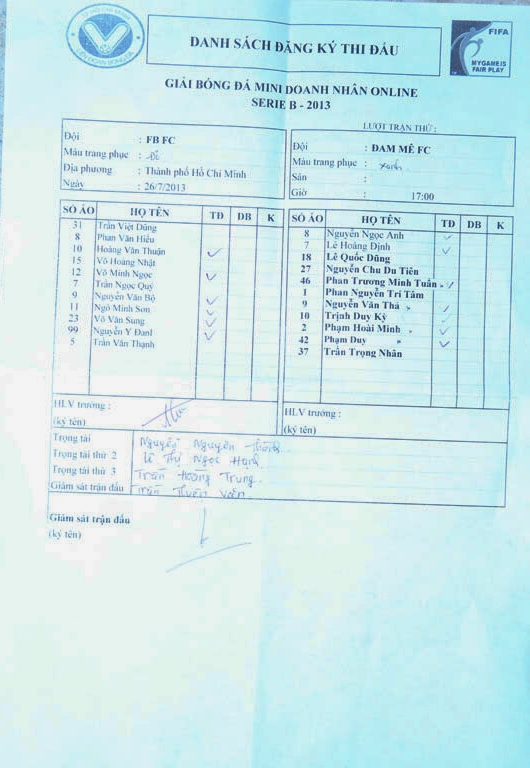 TP HỒ CHÍ MINH
LIÊN ĐOÀN BÓNG ĐÁ
DANH SÁCH ĐĂNG KÝ THI ĐẤU
FIFA
MY GAME IS
FAIR PLAY
GIẢI BÓNG ĐÁ MINI DOANH NHÂN ONLINE
SERIE B - 2013
LƯỢT TRẬN THỨ :
Đội : FB FC
Màu trang phục : Đỏ
Địa phương : Thành phố Hồ Chí Minh
Ngày : 26/7/2013
Đội : ĐAM MÊ FC
Màu trang phục : xanh
Sân :
Giờ : 17:00
SỐ ÁO HỌ TÊN TĐ DB K
31 Trần Việt Dũng
8 Phan Văn Hiếu
10 Hoàng Văn Thuận
15 Võ Hoàng Nhật
12 Võ Minh Ngọc
7 Trần Ngọc Quý
9 Nguyễn Văn Bộ
11 Ngô Minh Sơn
23 Võ Văn Sung
99 Nguyễn Y Đanl
5 Trần Văn Thạnh
SỐ ÁO HỌ TÊN TĐ DB K
8 Nguyễn Ngọc Anh
7 Lê Hoàng Định
18 Lê Quốc Dũng
27 Nguyễn Chu Du Tiên
46 Phan Trương Minh Tuấn
1 Phan Nguyễn Trí Tâm
9 Nguyễn Văn Thả
10 Trịnh Duy Kỳ
2 Phạm Hoài Minh
42 Phạm Duy
37 Trần Trọng Nhân
HLV trưởng :
(ký tên)
HLV trưởng :
(ký tên)
Trọng tài Nguyễn Nguyên Thành
Trọng tài thứ 2 Lê Thị Ngọc Hạnh
Trọng tài thứ 3 Trần Hoàng Trung
Giám sát trận đấu Trần Thuận Văn
Giám sát trận đấu
(ký tên)